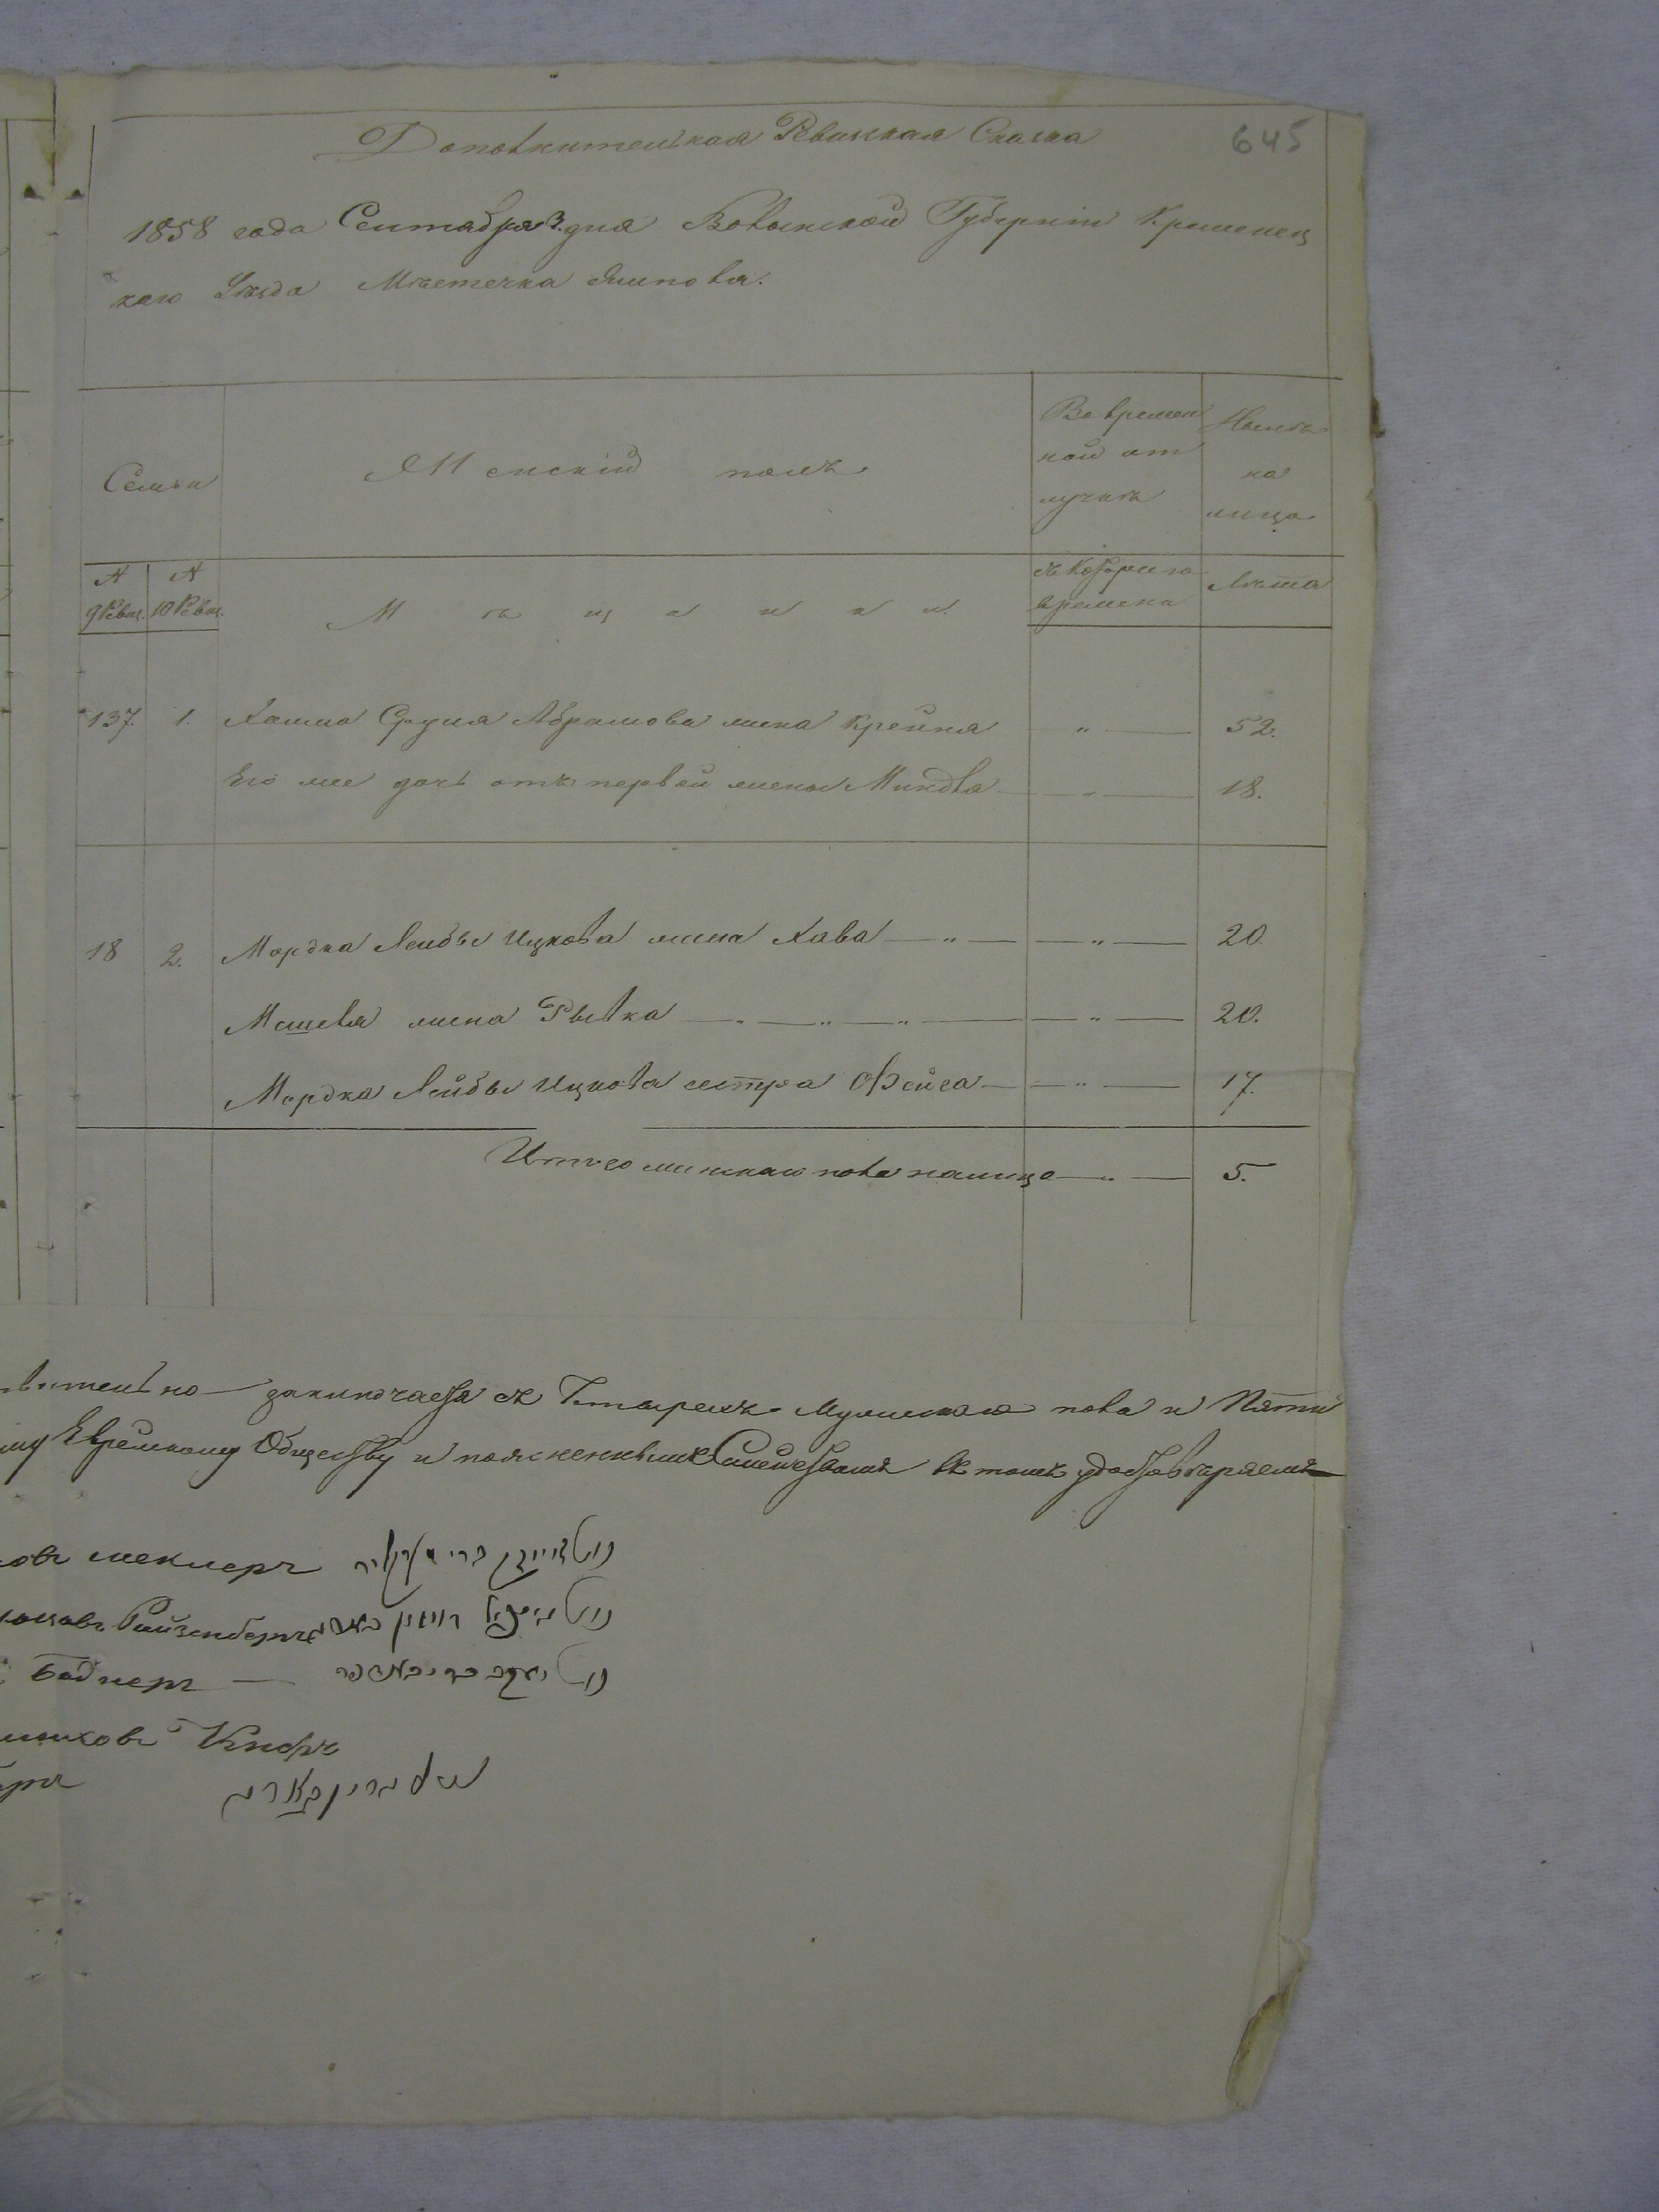 Дополнительная Ревизская Сказка
645
1858 года Сентября 3. дня Волынской Губерніи Кременец
каго Уѣзда Мѣстечка Ямполя.
Семьи
Женскій полъ
Во времен
ной от
лучкѣ
Нынѣ
на
лицо
№
9 Ревиз.
№
10 Ревиз.
Мѣщанки
съ котораго
времени
Лѣта
137. 1. Хаима Сруля Абрамова жена Крейня " 52.
Его же дочь отъ первой жены Миндля " 18.
18 2. Мордка Лейбы Ицкова жена Хава " " 20.
Мошеля жена Рывка " " " " 20.
Мордка Лейбы Ицкова сестра Фейга " 17.
Итого женскаго пола налицо " 5.
вительно заключается съ Четырехъ Мужескаго пола и Пяти
му Еврейскому Обществу и поясненнымъ Семействамъ въ томъ удостовѣряемъ
овъ Шеклеръ
Райзенбергъ
Боднеръ